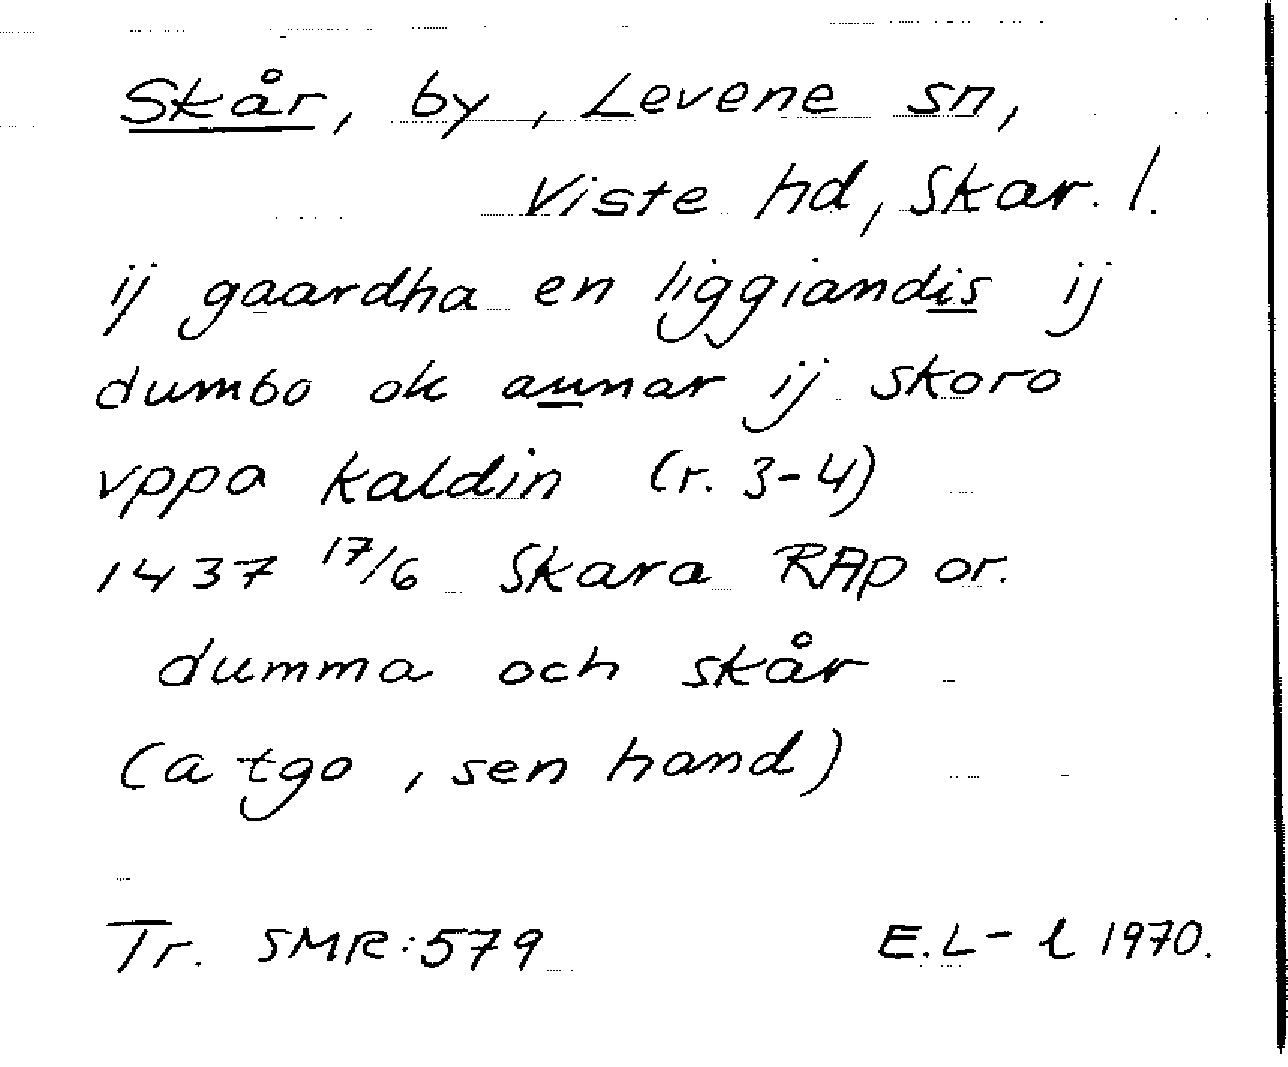 Skår, by, Levene sn,
Viste hd, Skar. l.
ij gaardha en liggiandis ij
dumbo ok annar ij skoro
vppa kaldin (r. 3-4)
1437 17/6 Skara RAp or.
dumma och skår
(a tgo, sen hand)
Tr. SMR:579 E.L-l 1970.